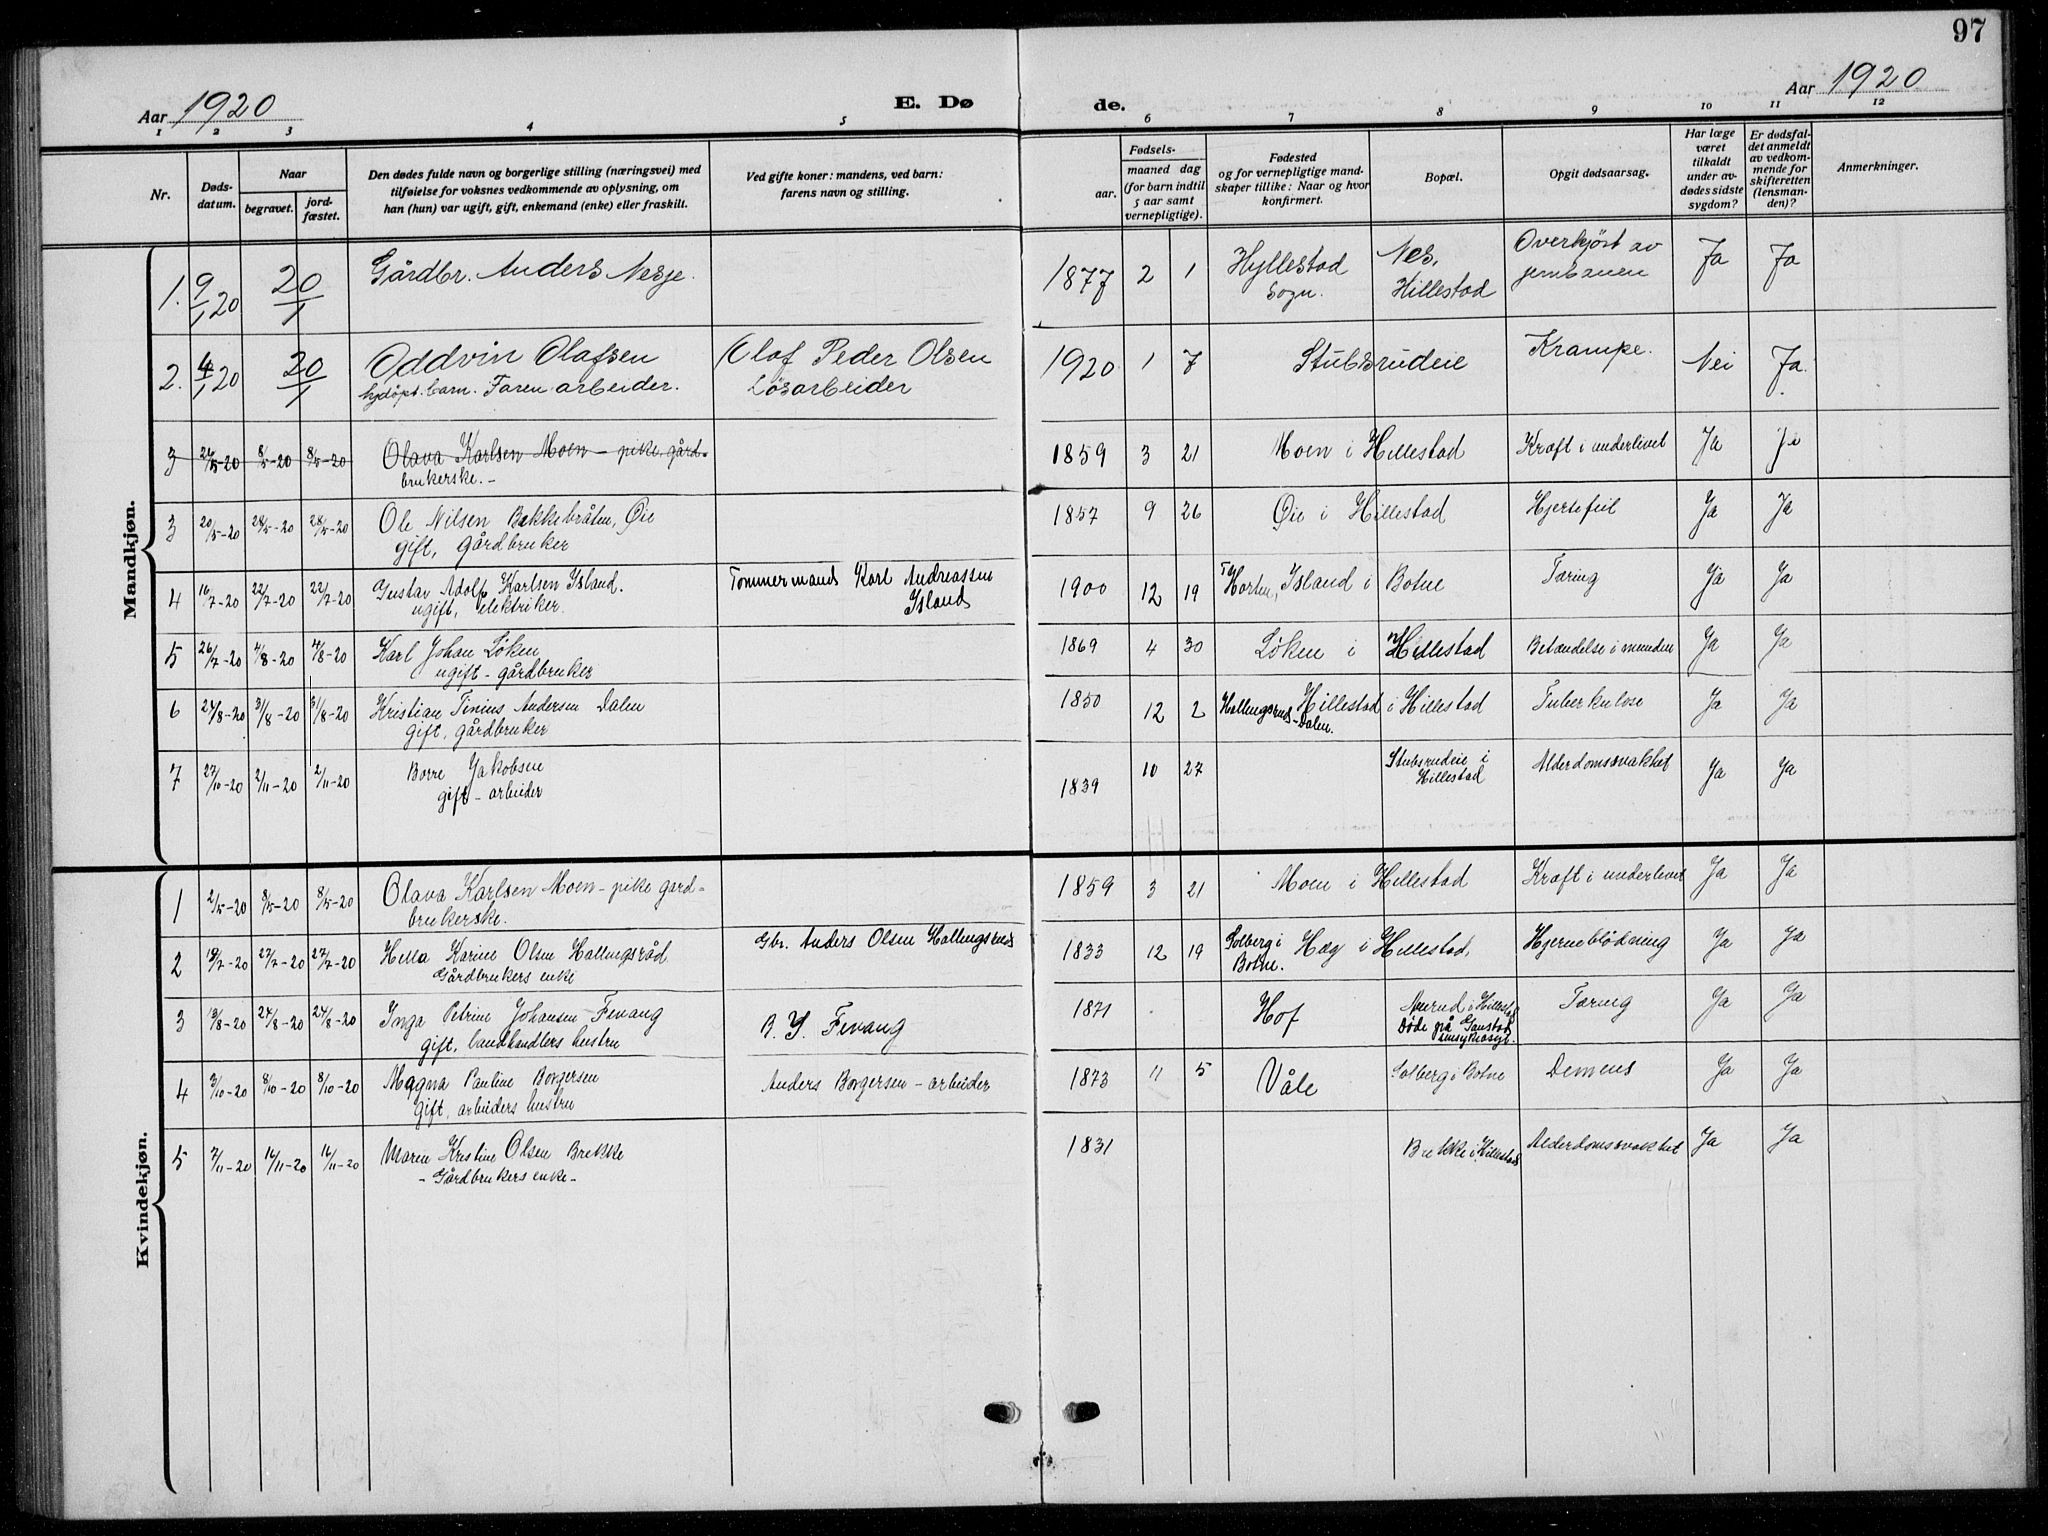 97
Aar 1920 E. Dø de. Aar 1920
1 2 3 4 5 6 7 8 9 10 11 12
Nr.
Døds-
datum.
Naar
begravet.
jord-
fæstet.
Den dødes fulde navn og borgerlige stilling (næringsvei) med
tilføielse for voksnes vedkommende av oplysning, om
han (hun) var ugift, gift, enkemand (enke) eller fraskilt.
Ved gifte koner: mandens, ved barn:
farens navn og stilling.
Fødsels-
aar.
maaned dag
(for barn indtil
5 aar samt
vernepligtige).
Fødested
og for vernepligtige mand-
skaper tillike: Naar og hvor
konfirmert.
Bopæl.
Opgit dødsaarsag.
Har læge
været
tilkaldt
under av-
dødes sidste
sygdom?
Er dødsfal-
det anmeldt
av vedkom-
mende for
skifteretten
(lensman-
den)?
Anmerkninger.
Mandkjøn.
1. 9/1 20 20/1 Gårdbr. Anders Nesje. 1877 2 1 Hyllestad Nes, Overkjørt av Ja Ja
Sogn. Hillestad jernbanen
2. 4/1 20 20/1 Oddvin Olafsen Olaf Peder Olsen 1920 1 7 Stubsrudeie Krampe. Nei Ja.
hjdøpt. barn. Faren arbeider. Løsarbeider
3 8/5-20 8/5-20 Olava Karlsen Moen - pike, gård- 1859 3 21 Moen i Hillestad Kræft i underlivet Ja
brukerske. -
3 20/5-20 28/5-20 28/5-20 Ole Nilsen Bakkebråten, Øie 1857 9 26 Øie i Hillestad Hjertefeil Ja Ja
gift, gårdbruker
4 16/7-20 22/7-20 22/7-20 Gustav Adolf Karlsen Island. Tømmermand Karl Andreassen 1900 12 19 Horten, Island i Botne Tæring Ja Ja
ugift, elektriker. Island
5 26/7-20 4/8-20 4/8-20 Karl Johan Løken 1869 4 30 Løken i Hillestad Betændelse i munden Ja Ja
ugift - gårdbruker
6 24/8-20 31/8-20 31/8-20 Kristian Tinius Andersen Dalen 1850 12 2 Hallingsrud- Hillestad i Hillestad Tuberkulose Ja Ja
gift, gårdbruker Dalen.
7 27/10-20 2/11-20 2/11-20 Borre Jakobsen 1839 10 27 Stubsrudeie i Alderdomssvakhet Ja Ja
gift - arbeider Hillestad
Kvindekjøn.
1 2/5-20 8/5-20 8/5-20 Olava Karlsen Moen - pike gard- 1859 3 21 Moen i Hillestad Kræft i underlivet Ja Ja
brukerske.
2 19/7-20 27/7-20 27/7-20 Hella Karine Olsen Hallingsråd Gbr. Anders Olsen Hallingsrud 1833 12 19 Solberg i Hæg i Hillestad, Hjerneblødning Ja Ja
Gårdbrukers enke Botne.
3 13/8-20 24/8-20 24/8-20 Inga Petrine Johansen Fevang B. J. Fevang 1871 Hof i Hillestad Tæring Ja Ja
gift, landhandlers hustru Døde på Gaustad
sinsykeasyl.
4 3/10-20 8/10-20 8/10-20 Magna Pauline Borgersen Anders Borgersen - arbeider 1873 11 5 Våle Solberg i Botne Demens Ja Ja
gift, arbeiders hustru
5 7/11-20 16/11-20 16/11-20 Maren Kristine Olsen Brekke 1831 Brekke i Hillestad Alderdomssvakhet Ja Ja
- Gårdbrukers enke -